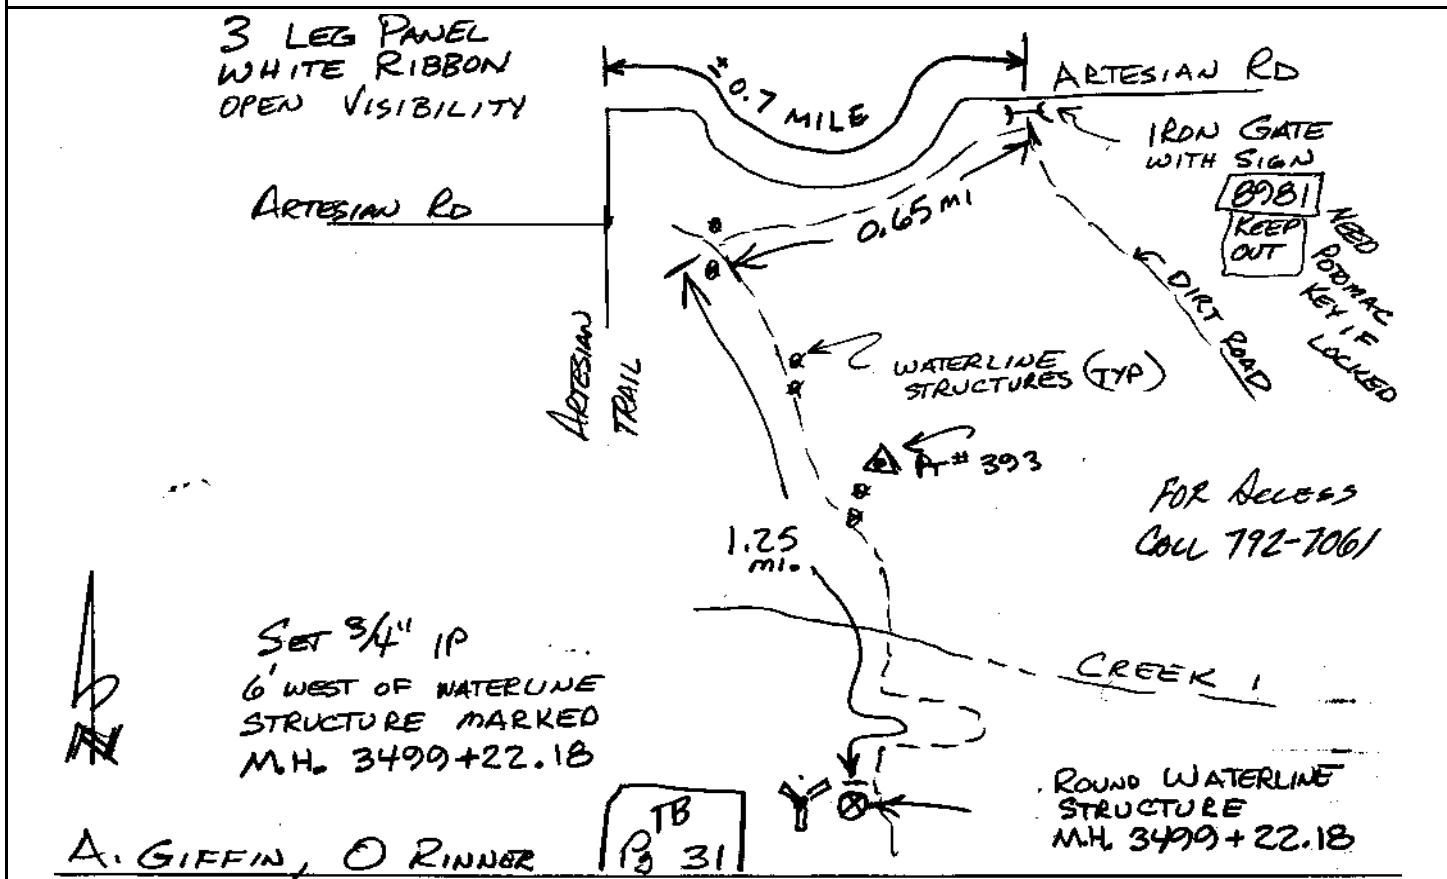 3 LEG PANEL
WHITE RIBBON
OPEN VISIBILITY
± 0.7 MILE
ARTESIAN RD
IRON GATE
WITH SIGN
8981
KEEP
OUT
NEED
POTOMAC
KEY IF
LOCKED
ARTESIAN RD
0.65 MI
DIRT ROAD
ARTESIAN
TRAIL
WATERLINE
STRUCTURES (TYP)
PT # 393
FOR ACCESS
CALL 792-7061
1.25
MI.
SET 3/4" IP
6' WEST OF WATERLINE
STRUCTURE MARKED
M.H. 3499+22.18
CREEK
N
ROUND WATERLINE
STRUCTURE
M.H. 3499+22.18
A. GIFFIN, O RINNER
TB
Pg 31